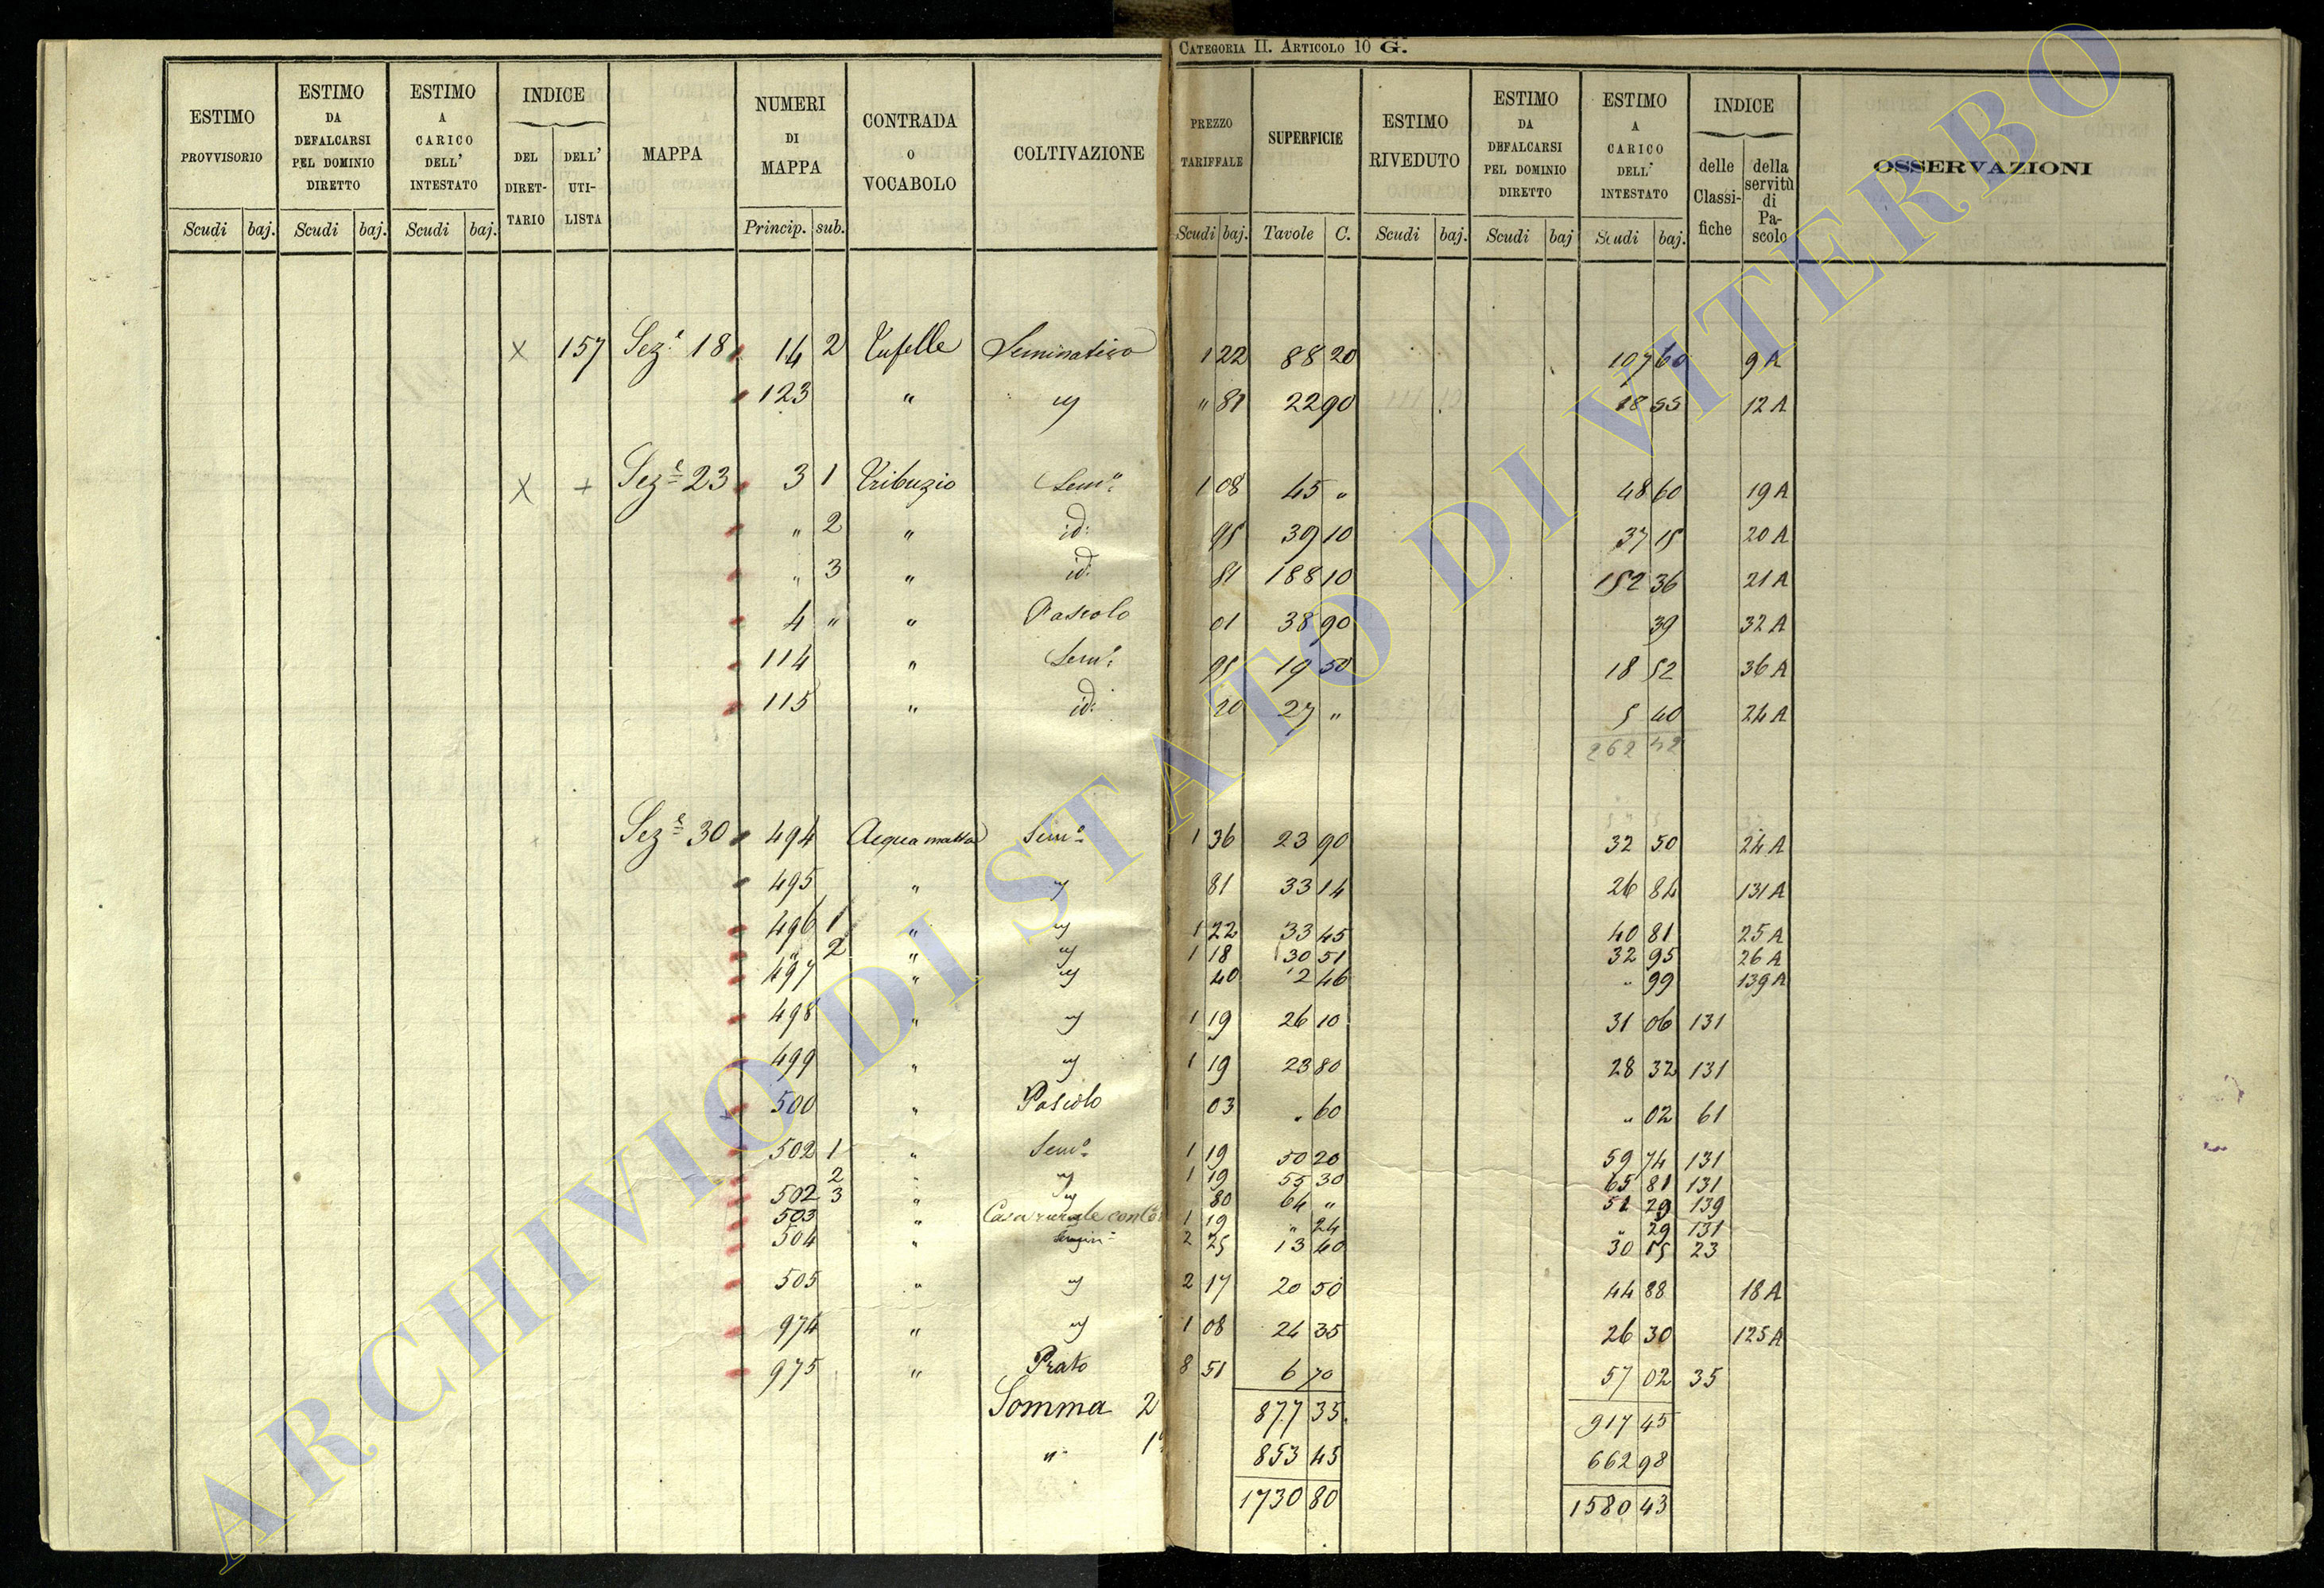 CATEGORIA II. ARTICOLO 10 G.
ESTIMO PROVVISORIO | ESTIMO DA DEFALCARSI PEL DOMINIO DIRETTO | ESTIMO A CARICO DELL' INTESTATO | INDICE DEL DIRETTARIO | DELL' UTILISTA | MAPPA | NUMERI DI MAPPA | CONTRADA O VOCABOLO | COLTIVAZIONE | PREZZO TARIFFALE | SUPERFICIE | ESTIMO RIVEDUTO | ESTIMO DA DEFALCARSI PEL DOMINIO DIRETTO | ESTIMO A CARICO DELL' INTESTATO | INDICE delle Classifiche | della servitù di Pascolo | OSSERVAZIONI
Scudi | baj. | Scudi | baj. | Scudi | baj. | Princip. | sub. | Scudi | baj. | Tavole | C. | Scudi | baj. | Scudi | baj | Scudi | baj.
X 157 Sez.e 18 14 2 Tufelle Seminativo 1 22 88 20 107 60 9 A
123 " " " 81 22 90 18 55 12 A
X + Sez.e 23 3 1 Tribuzio Sem.o 1 08 45 " 48 60 19 A
" 2 " id: 95 39 10 37 15 20 A
" 3 " id. 81 188 10 152 36 21 A
4 " " Pascolo 01 38 90 39 32 A
114 " Sem.o 95 19 50 18 52 36 A
115 " id: 20 27 " 5 40 24 A
262 42
Sez.e 30 494 Acqua matta Sem.o 1 36 23 90 32 50 24 A
495 " " 81 33 14 26 84 131 A
496 1 " " 1 22 33 45 40 81 25 A
" 2 " " 1 18 30 51 32 95 26 A
497 " " 40 2 46 " 99 139 A
498 " " 1 19 26 10 31 06 131
499 " " 1 19 23 80 28 32 131
500 " Pascolo 03 " 60 " 02 61
502 1 " Sem.o 1 19 50 20 59 74 131
2 " " 1 19 55 30 65 81 131
502 3 " " 80 64 " 51 20 139
503 " Casa rurale con Co 1 19 " 24 " 29 131
504 " 2 25 13 40 30 15 23
505 " " 2 17 20 50 44 88 18 A
974 " " 1 08 24 35 26 30 125 A
975 " Prato 8 51 6 70 57 02 35
Somma 2 877 35 917 45
" 1a 853 45 662 98
1730 80 1580 43
ARCHIVIO DI STATO DI VITERBO